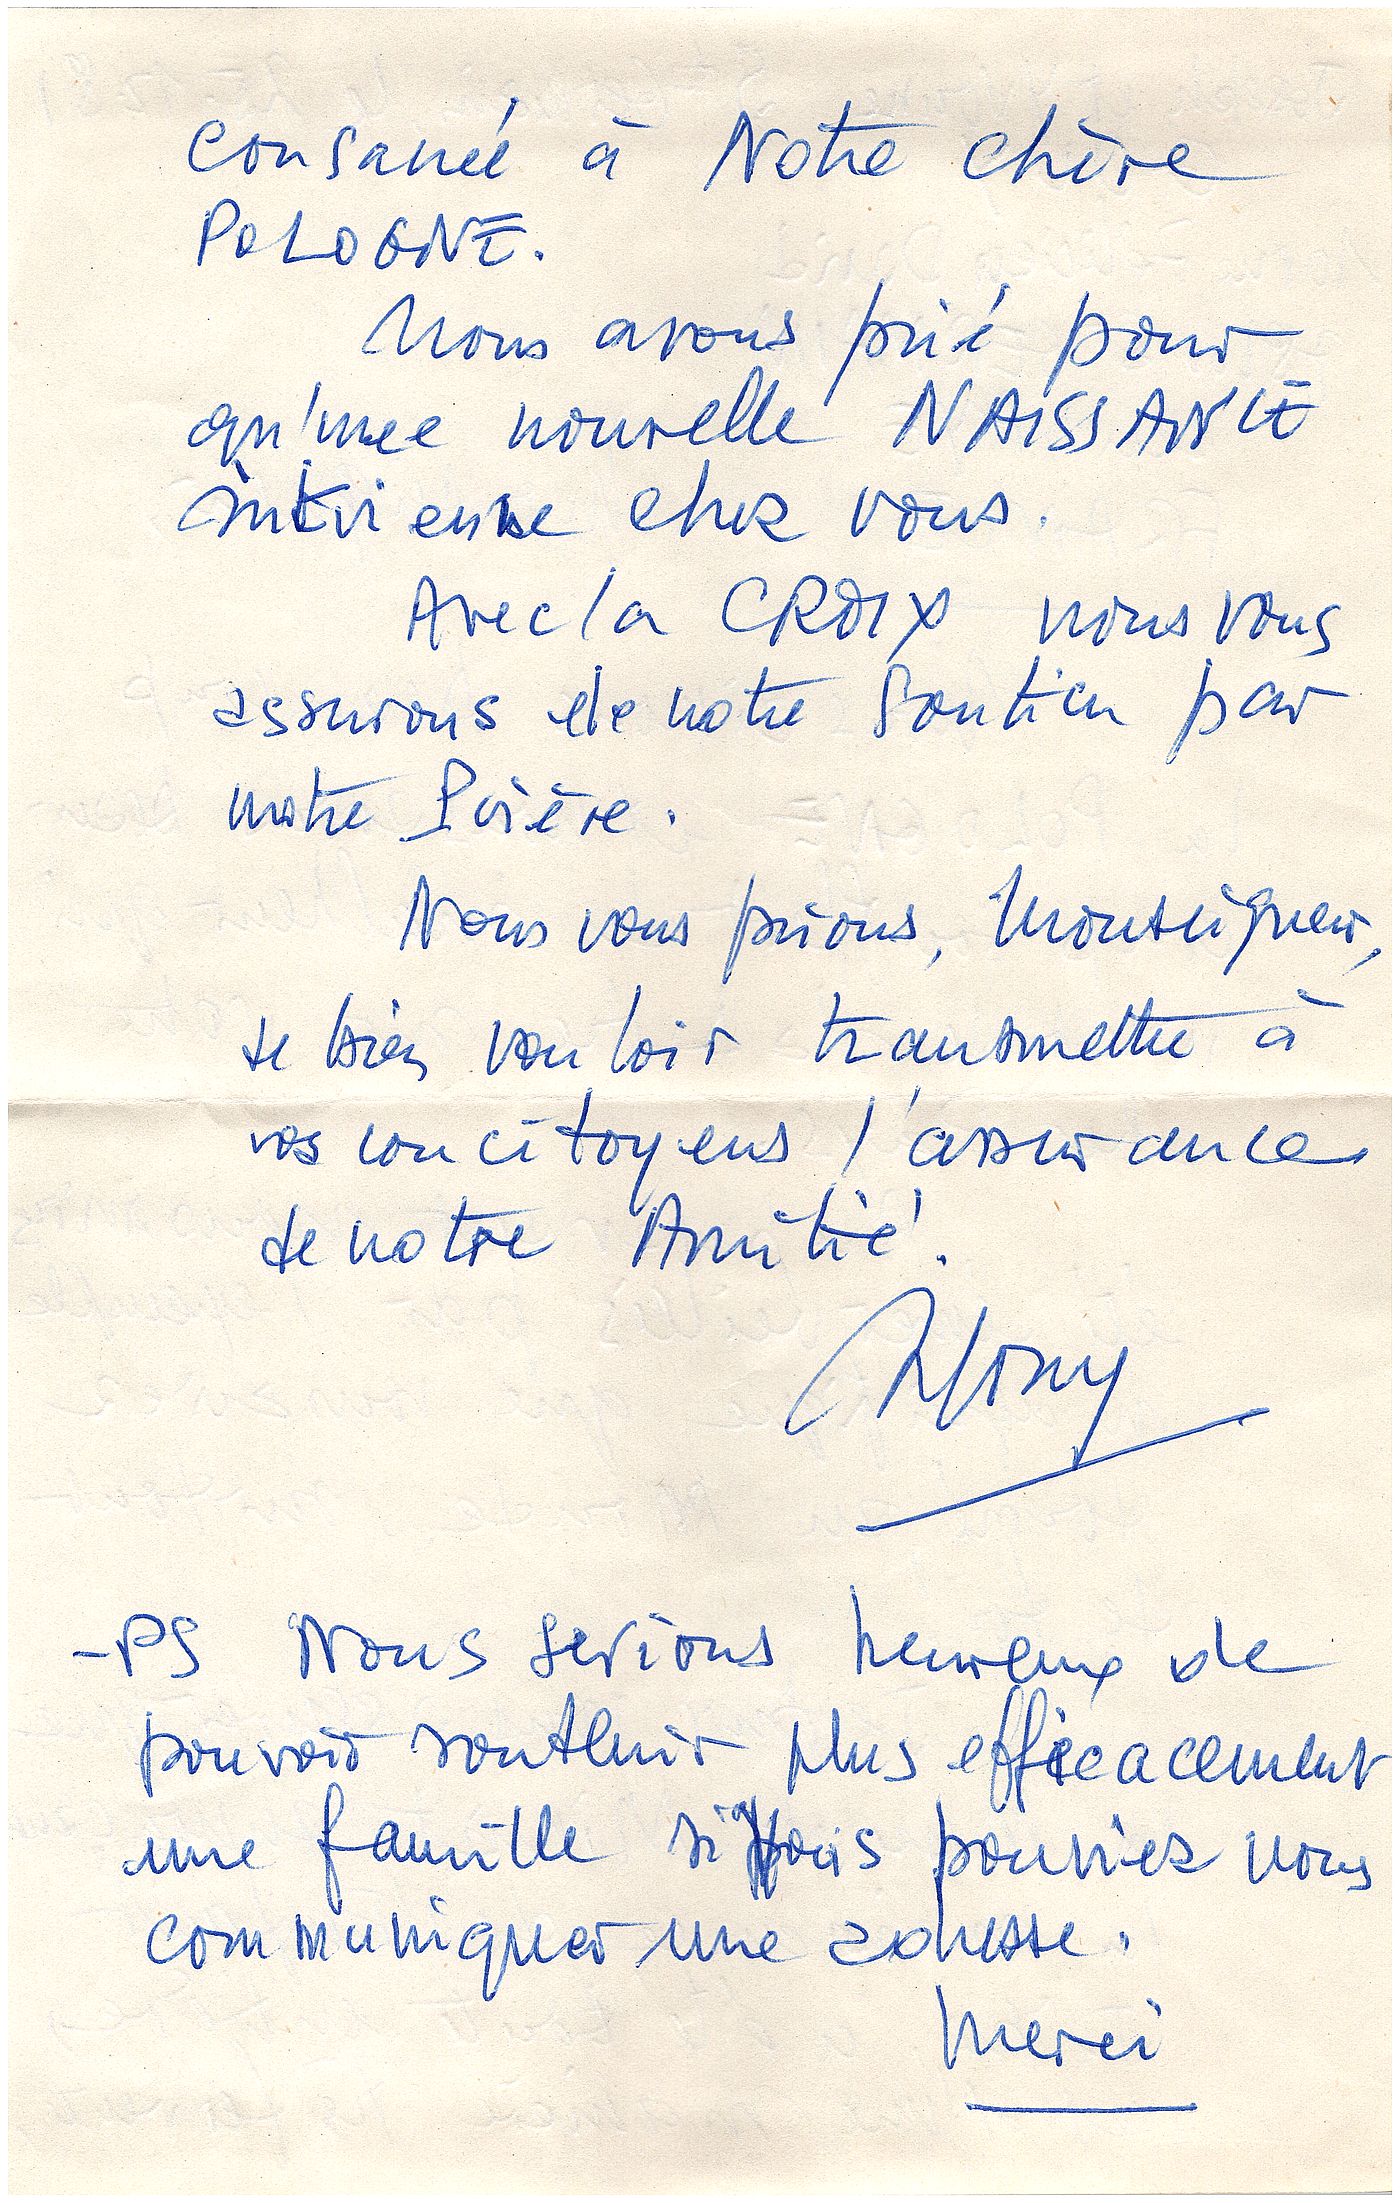 consacrée à Notre chère
POLOGNE.
Nous avons prié pour
qu'une nouvelle NAISSANCE
intervienne chez vous.
Avec la CROIX nous vous
assurons de notre soutien par
notre Prière.
Nous vous prions, Monseigneur,
de bien vouloir transmettre à
vos concitoyens l'assurance
de notre Amitié.
-PS Nous serions heureux de
pouvoir soutenir plus efficacement
une famille si vous pouviez nous
communiquer une adresse.
Merci